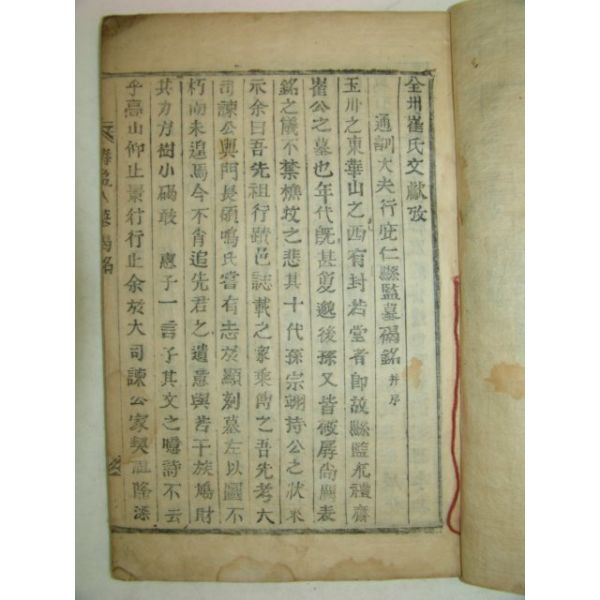 全州崔氏文獻攷
通訓大夫行庇仁縣監墓碣銘 并序
玉川之東華山之西有封若堂者即故縣監永禮齋
崔公之墓也年代旣甚夐邈後孫又皆殘孱尙闕表
銘之儀不禁樵牧之悲其十代孫宗翊持公之狀來
示余曰吾先祖行蹟邑誌載之家乘傳之吾先考大
司諫公與門長碩鳴氏嘗有志於顯刻墓左以圖不
朽而未遑焉今不肖追先君之遺意與若干族鳩財
其力方樹小碣敢 惠子一言子其文之噫詩不云
乎高山仰止景行行止余於大司諫公家契誼隆深
墓碣銘